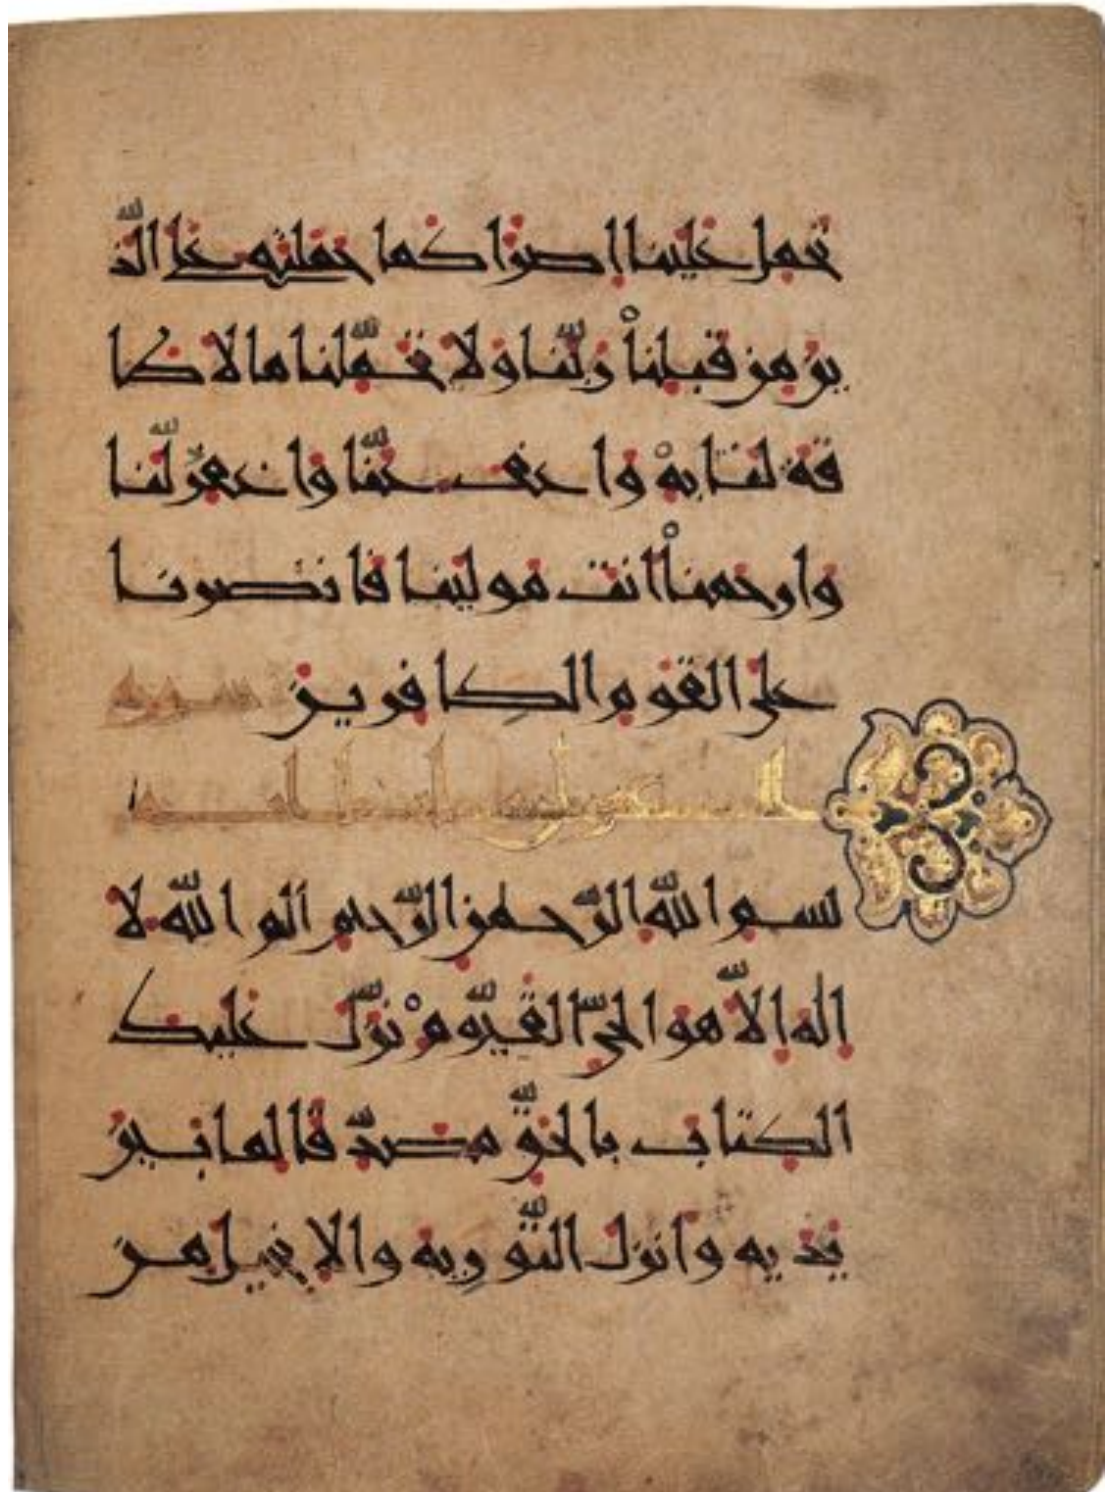 تحمل علينا اصرا كما حملته على الذ
ين من قبلنا ربنا ولا تحملنا ما لا طا
قة لنا به واعف عنا واغفر لنا
وارحمنا انت مولينا فانصرنا
على القوم الكافرين سورة
بسم الله الرحمن الرحيم الم الله لا
اله الا هو الحي القيوم نزل عليك
الكتاب بالحق مصدقا لما بين
يديه وانزل التورية والانجيل من